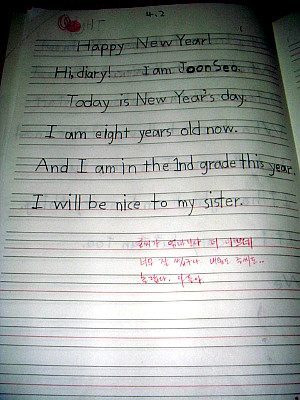 4.2
Happy New Year!
Hi, diary! I am JoonSeo.
Today is New Year's day.
I am eight years old now.
And I am in the 1nd grade this year.
I will be nice to my sister.
더
너무 잘 썼구나